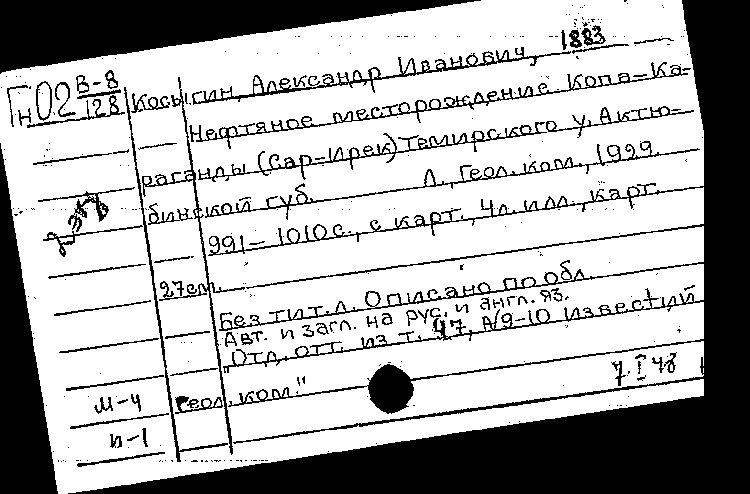 Гн02 В-8/128 Косыгин, Александр Иванович, 1883
Нефтяное месторождение Копа-Ка-
раганды (Сар-Ирек) Темирского у. Актю-
бинской губ. Л., Геол. ком., 1929.
991-1010 с., с карт., 4 л. илл., карт.
27 см.
Без тит. л. Описано по обл.
Авт. и загл. на рус. и англ. яз.
"Отд. отт. из т. 47, №9-10 Известий
Геол. ком."
7.I 48
М-4
п-1